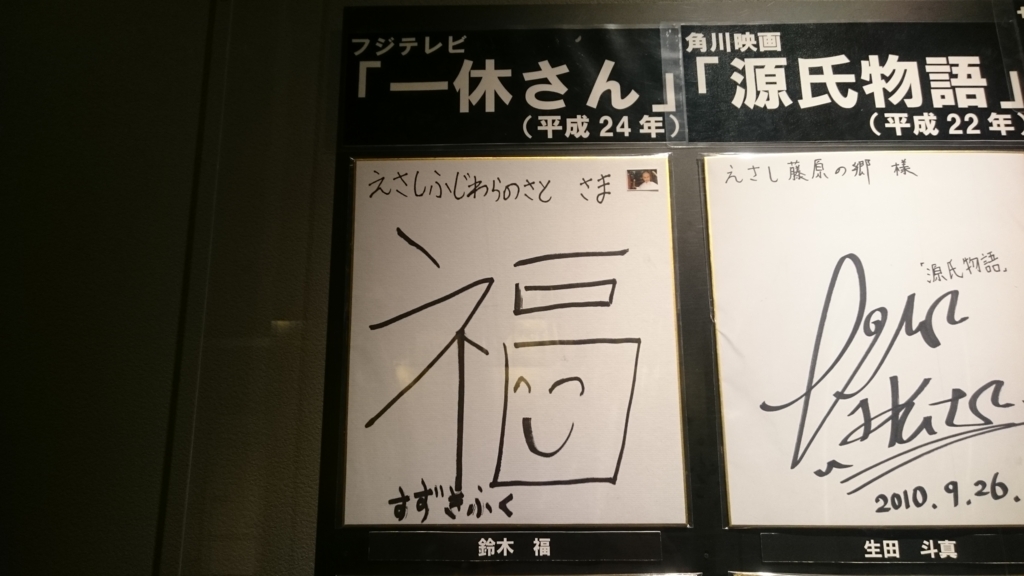 フジテレビ
「一休さん」
（平成24年）
えさしふじわらのさと さま
福
すずきふく
鈴木 福
角川映画
「源氏物語」
（平成22年）
えさし藤原の郷 様
「源氏物語」
2010.9.26.
生田 斗真